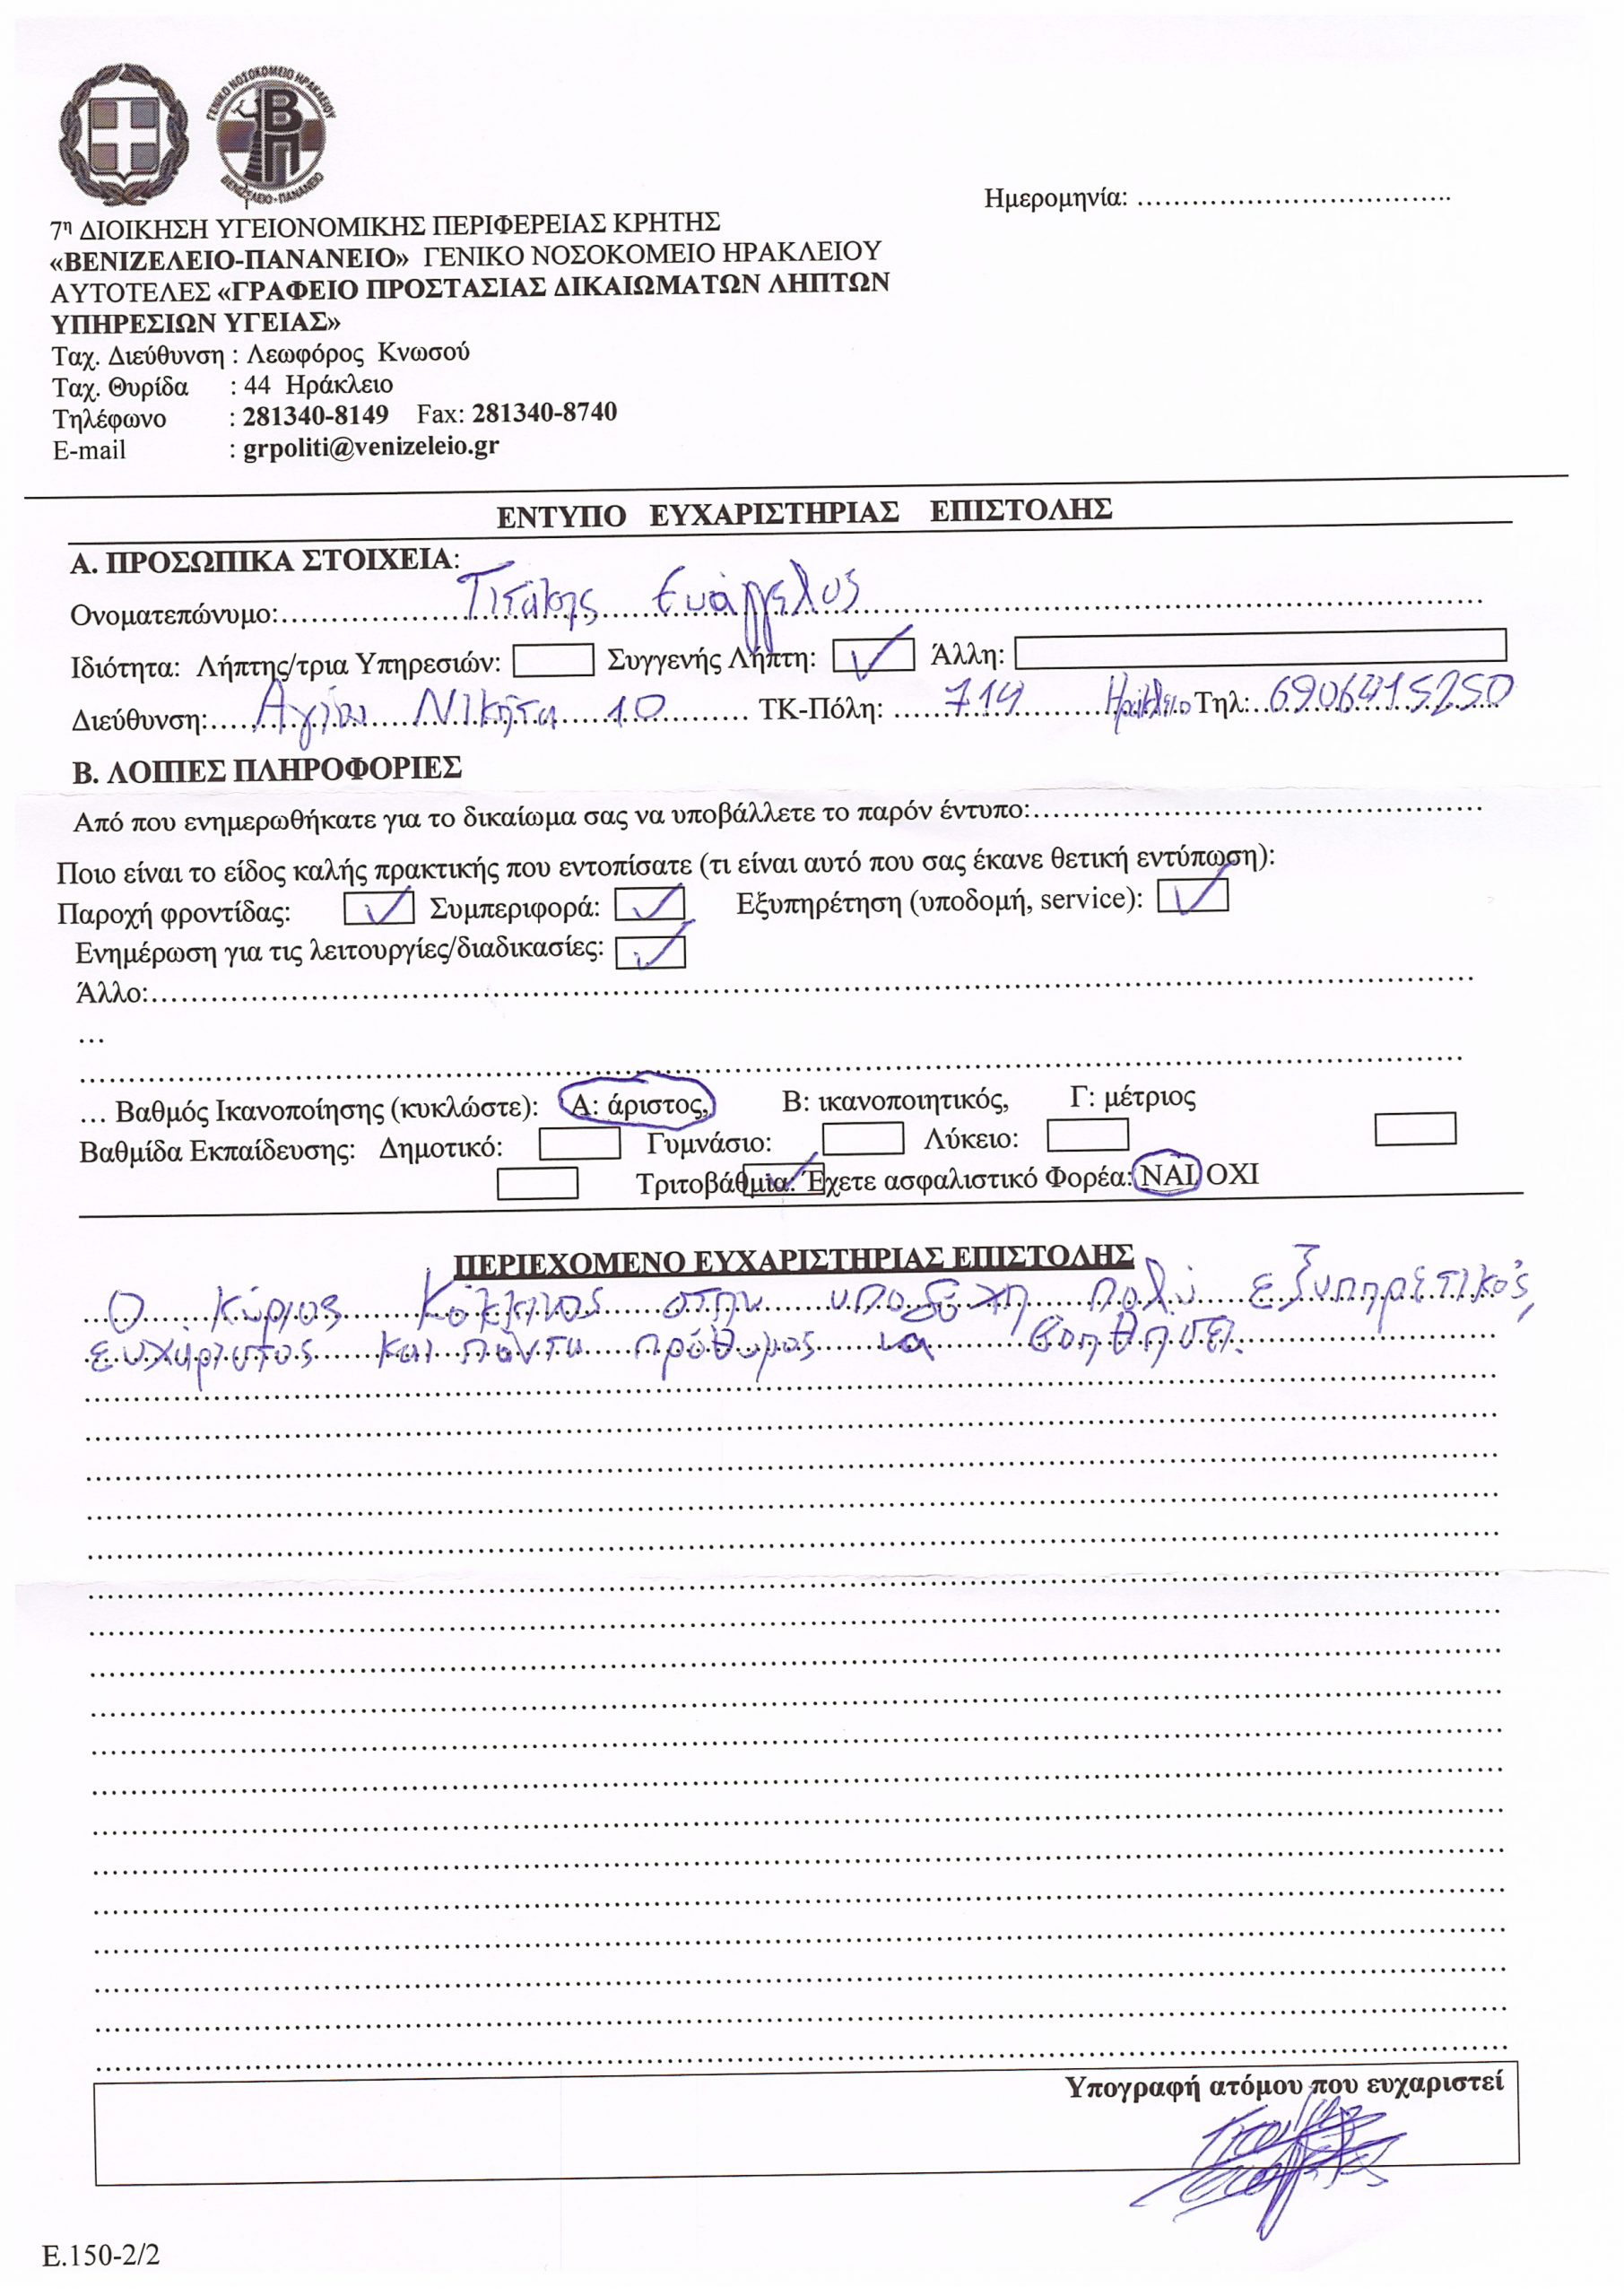 ΓΕΝΙΚΟ ΝΟΣΟΚΟΜΕΙΟ ΗΡΑΚΛΕΙΟΥ
ΒΠ
ΒΕΝΙΖΕΛΕΙΟ-ΠΑΝΑΝΕΙΟ
Ημερομηνία: ....................................
7η ΔΙΟΙΚΗΣΗ ΥΓΕΙΟΝΟΜΙΚΗΣ ΠΕΡΙΦΕΡΕΙΑΣ ΚΡΗΤΗΣ
«ΒΕΝΙΖΕΛΕΙΟ-ΠΑΝΑΝΕΙΟ» ΓΕΝΙΚΟ ΝΟΣΟΚΟΜΕΙΟ ΗΡΑΚΛΕΙΟΥ
ΑΥΤΟΤΕΛΕΣ «ΓΡΑΦΕΙΟ ΠΡΟΣΤΑΣΙΑΣ ΔΙΚΑΙΩΜΑΤΩΝ ΛΗΠΤΩΝ
ΥΠΗΡΕΣΙΩΝ ΥΓΕΙΑΣ»
Ταχ. Διεύθυνση : Λεωφόρος Κνωσού
Ταχ. Θυρίδα : 44 Ηράκλειο
Τηλέφωνο : 281340-8149 Fax: 281340-8740
E-mail : grpoliti@venizeleio.gr
ΕΝΤΥΠΟ ΕΥΧΑΡΙΣΤΗΡΙΑΣ ΕΠΙΣΤΟΛΗΣ
Α. ΠΡΟΣΩΠΙΚΑ ΣΤΟΙΧΕΙΑ:
Ονοματεπώνυμο: Ευάγγελος
Ιδιότητα: Λήπτης/τρια Υπηρεσιών: Συγγενής Λήπτη: ✓ Άλλη:
Διεύθυνση: Αγίου Νικήτα 10 ΤΚ-Πόλη: 714 Ηράκλειο Τηλ: 6906415250
Β. ΛΟΙΠΕΣ ΠΛΗΡΟΦΟΡΙΕΣ
Από που ενημερωθήκατε για το δικαίωμα σας να υποβάλλετε το παρόν έντυπο:
Ποιο είναι το είδος καλής πρακτικής που εντοπίσατε (τι είναι αυτό που σας έκανε θετική εντύπωση):
Παροχή φροντίδας: ✓ Συμπεριφορά: ✓ Εξυπηρέτηση (υποδομή, service): ✓
Ενημέρωση για τις λειτουργίες/διαδικασίες: ✓
Άλλο:
…
… Βαθμός Ικανοποίησης (κυκλώστε): Α: άριστος, Β: ικανοποιητικός, Γ: μέτριος
Βαθμίδα Εκπαίδευσης: Δημοτικό: Γυμνάσιο: Λύκειο:
Τριτοβάθμια: ✓ Έχετε ασφαλιστικό Φορέα: ΝΑΙ, ΟΧΙ
ΠΕΡΙΕΧΟΜΕΝΟ ΕΥΧΑΡΙΣΤΗΡΙΑΣ ΕΠΙΣΤΟΛΗΣ
Ο κύριος Κόκκινος στην υποδοχή πολύ εξυπηρετικός,
ευχάριστος και πάντα πρόθυμος να βοηθήσει.
Υπογραφή ατόμου που ευχαριστεί
Ε.150-2/2